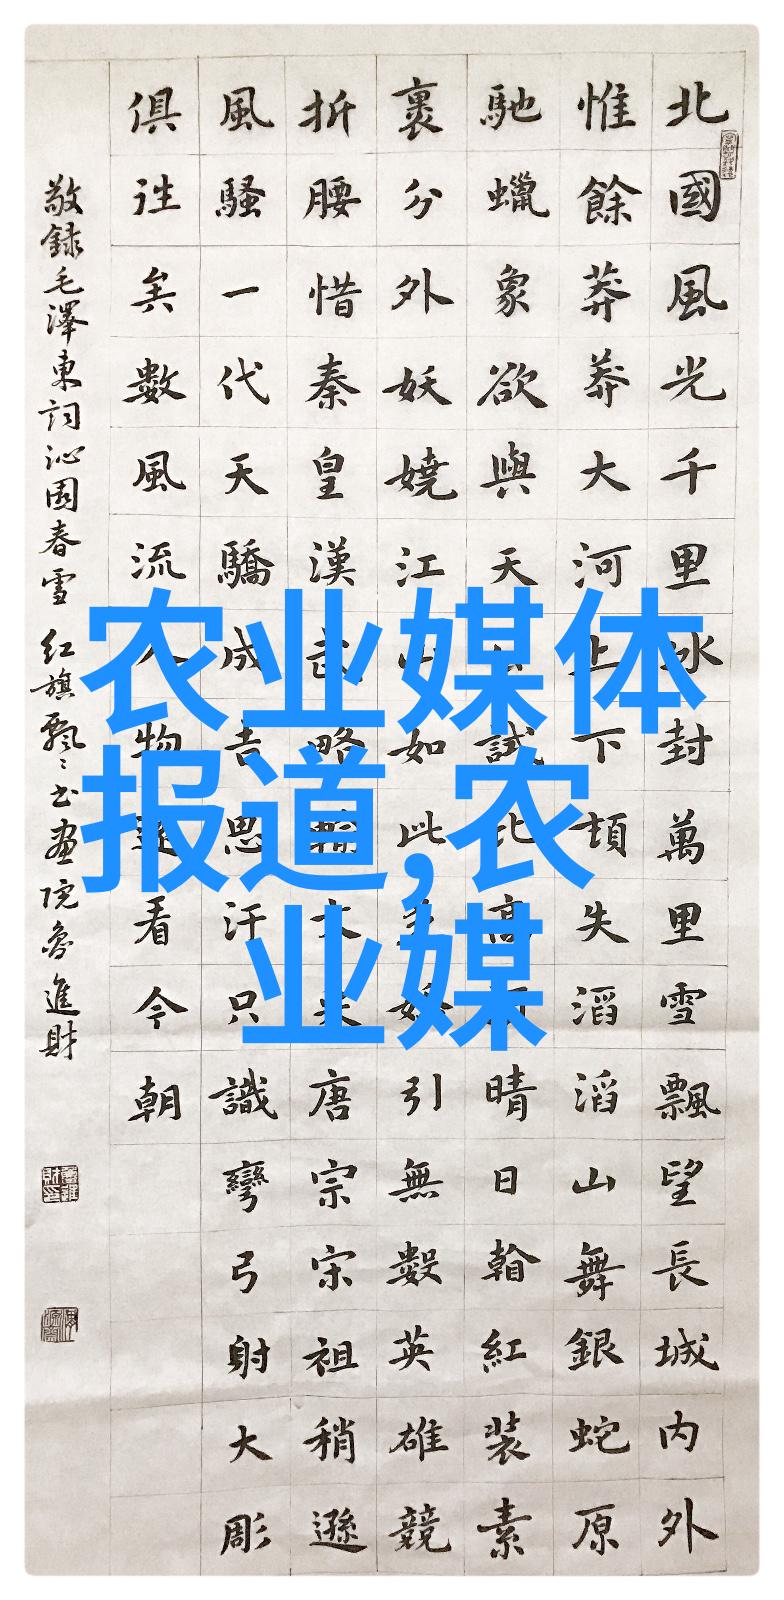 北國風光千里冰封萬里雪飄望長城内外
惟餘莽莽大河上下頓失滔滔山舞銀蛇原
馳蠟象欲與天公試比高須晴日翰紅裝素
裹分外妖嬈江山如此多嬌引無數英雄競
折腰惜秦皇漢武略輸文采唐宗宋祖稍遜
風騷一代天驕成吉思汗只識彎弓射大彫
俱往矣數風流人物還看今朝
敬録毛澤東詞沁園春雪 红旗飄〻书画院魯進財
农业媒体
报道,农
业媒